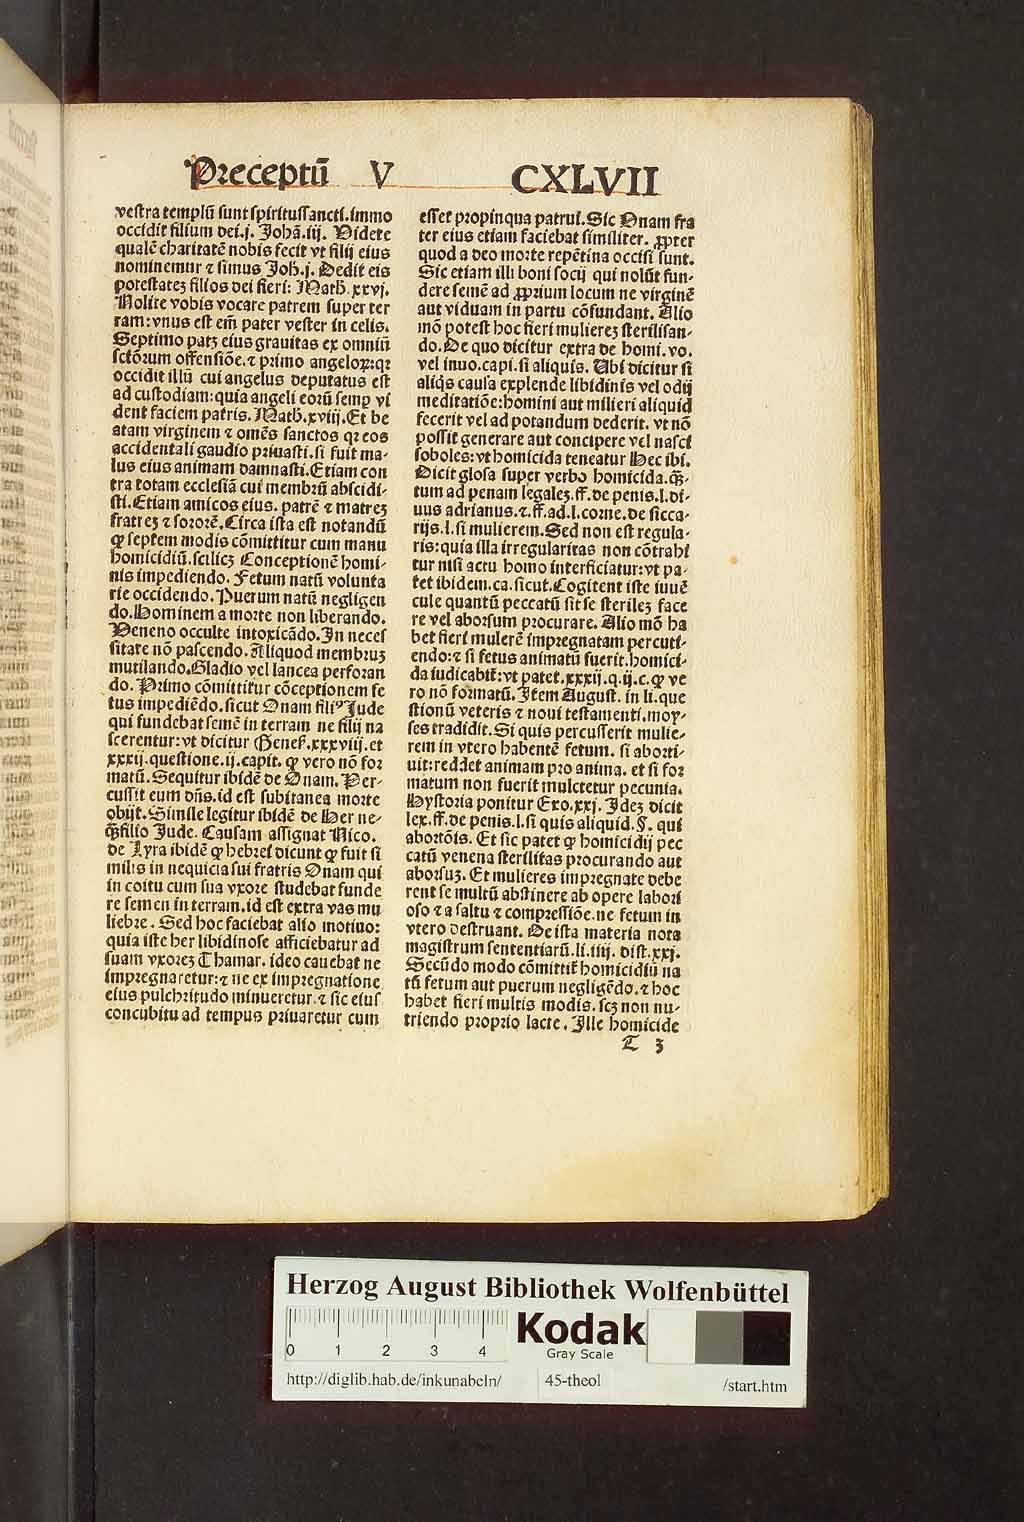 Preceptū V CXLVII
vestra templū sunt spiritussancti. immo
occidit filium dei. j. Johā. iij. Videte
qualē charitatē nobis fecit vt filij eius
nominemur ⁊ simus Joh. j. Dedit eis
potestatez filios dei fieri: Math. xxvj.
Nolite vobis vocare patrem super ter
ram: vnus est em̄ pater vester in celis.
Septimo patz eius grauitas ex omniū
sctōrum offensiōe. ⁊ primo angelorꝝ: qꝛ
occidit illū cui angelus deputatus est
ad custodiam: quia angeli eorū semꝑ vi
dent faciem patris. Math. xviij. Et be
atam virginem ⁊ omēs sanctos qꝛ eos
accidentali gaudio priuasti. si fuit ma-
lus eius animam damnasti. Etiam con
tra totam ecclesiā cui membrū abscidi-
sti. Etiam amicos eius. patrē ⁊ matrez
fratrez ⁊ sororē. Circa ista est notandū
ꝙ septem modis cōmittitur cum manu
homicidiū. scilicꝫ Conceptionē homi-
nis impediendo. Fetum natū volunta
rie occidendo. Puerum natū negligen
do. Hominem a morte non liberando.
Veneno occulte intoxicādo. In neces
sitate nō pascendo. Aliquod membruz
mutilando. Gladio vel lancea perforan
do. Primo cōmittitur cōceptionem fe
tus impediēdo. sicut Onam filiꝰ Jude
qui fundebat semē in terram ne filij na
scerentur: vt dicitur Genes. xxxviij. et
xxxij. questione. ij. capit. ꝙ vero nō for
matū. Sequitur ibidē de Onam. Per-
cussit eum dn̄s. id est subitanea morte
obijt. Simile legitur ibidē de Her ne-
qꝫ filio Jude. Causam assignat Nico.
de Lyra ibidē ꝙ hebrei dicunt ꝙ fuit si
milis in nequicia sui fratris Onam qui
in coitu cum sua vxore studebat funde
re semen in terram. id est extra vas mu
liebre. Sed hoc faciebat alio motiuo:
quia iste her libidinose afficiebatur ad
suam vxorez Thamar. ideo cauebat ne
impregnaretur: ⁊ ne ex impregnatione
eius pulchritudo minueretur. ⁊ sic eius
concubitu ad tempus priuaretur cum
esset propinqua patrui. Sic Onam fra
ter eius etiam faciebat similiter. ꝓpter
quod a deo morte repētina occisi sunt.
Sic etiam illi boni socij qui nolūt fun-
dere semē ad ꝓprium locum ne virginē
aut viduam in partu cōfundant. Alio
mō potest hoc fieri mulierez sterilisan-
do. De quo dicitur extra de homi. vo.
vel inuo. capi. si aliquis. Ubi dicitur si
aliqs causa explende libidinis vel odij
meditatiōe: homini aut milieri aliquid
fecerit vel ad potandum dederit. vt nō
possit generare aut concipere vel nasci
soboles: vt homicida teneatur Hec ibi.
Dicit glosa super verbo homicida. qꝫ-
tum ad penam legalez. ff. de penis. l. di-
uus adrianus. ⁊. ff. ad. l. corne. de sicca-
rijs. l. si mulierem. Sed non est regula-
ris: quia illa irregularitas non cōtrahi
tur nisi actu homo interficiatur: vt pa-
tet ibidem. ca. sicut. Cogitent iste iuuē
cule quantū peccatū sit se sterilez face
re vel aborsum procurare. Alio mō ha
bet fieri mulerē impregnatam percuti-
endo: ⁊ si fetus animatū fuerit. homici-
da iudicabit̄: vt patet. xxxij. q. ij. c. ꝙ ve
ro nō formatū. Item August. in li. que
stionū veteris ⁊ noui testamenti. moy-
ses tradidit. Si quis percusserit mulie-
rem in vtero habentē fetum. si aborti-
uit: reddet animam pro anima. et si for
matum non fuerit mulctetur pecunia.
Hystoria ponitur Exo. xxj. Idez dicit
lex. ff. de penis. l. si quis aliquid. §. qui
abortōis. Et sic patet ꝙ homicidij pec
catū venena sterilitas procurando aut
aborsuz. Et mulieres impregnate debe
rent se multū abstinere ab opere labori
oso ⁊ a saltu ⁊ compressiōe. ne fetum in
vtero destruant. De ista materia nota
magistrum sententiarū. li. iiij. dist. xxj.
Secūdo modo cōmittit̄ homicidiū na
tū fetum aut puerum negligēdo. ⁊ hoc
habet fieri multis modis. scꝫ non nu-
triendo proprio lacte. Ille homicide
T 3
Herzog August Bibliothek Wolfenbüttel
0 1 2 3 4
Kodak
Gray Scale
http://diglib.hab.de/inkunabeln/ 45-theol /start.htm